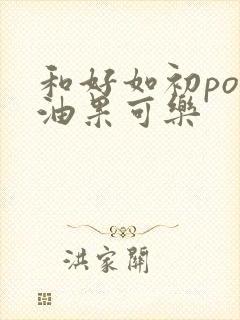 和好如初po
油果可樂
洪家開